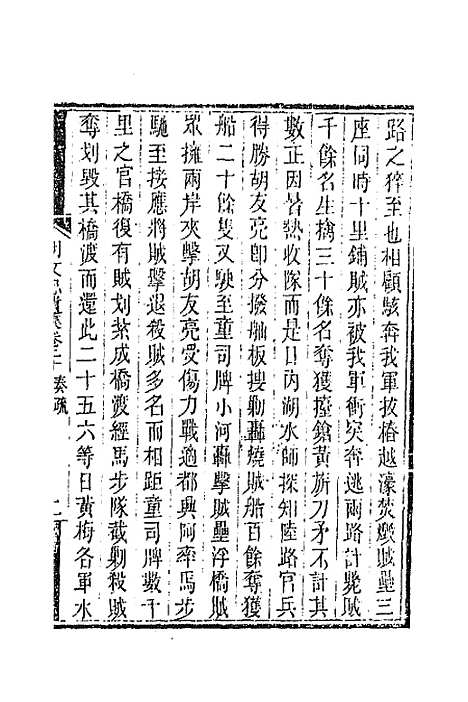 路之猝至也相顧駭奔我軍拔樁越濠焚燬賊壘三
座同時十里鋪賊亦被我軍衝突奔逃兩路計斃賊
千餘名生擒三十餘名奪獲擡鎗黃旂刀矛不計其
數正因暑熱收隊而是日內湖水師探知陸路官兵
得勝胡友亮即分撥舢板搜勦轟燒賊船百餘奪獲
船二十餘隻又駛至童司牌小河轟擊賊壘浮橋賊
眾擁兩岸夾擊胡友亮受傷力戰適都興阿率馬步
馳至接應將賊擊退殺賊多名而相距童司牌數十
里之官橋復有賊划紮成橋渡經馬步隊截剿殺賊
奪划毀其橋渡而還此二十五六等日黃梅各軍水
文忠遺集卷二 奏疏 二